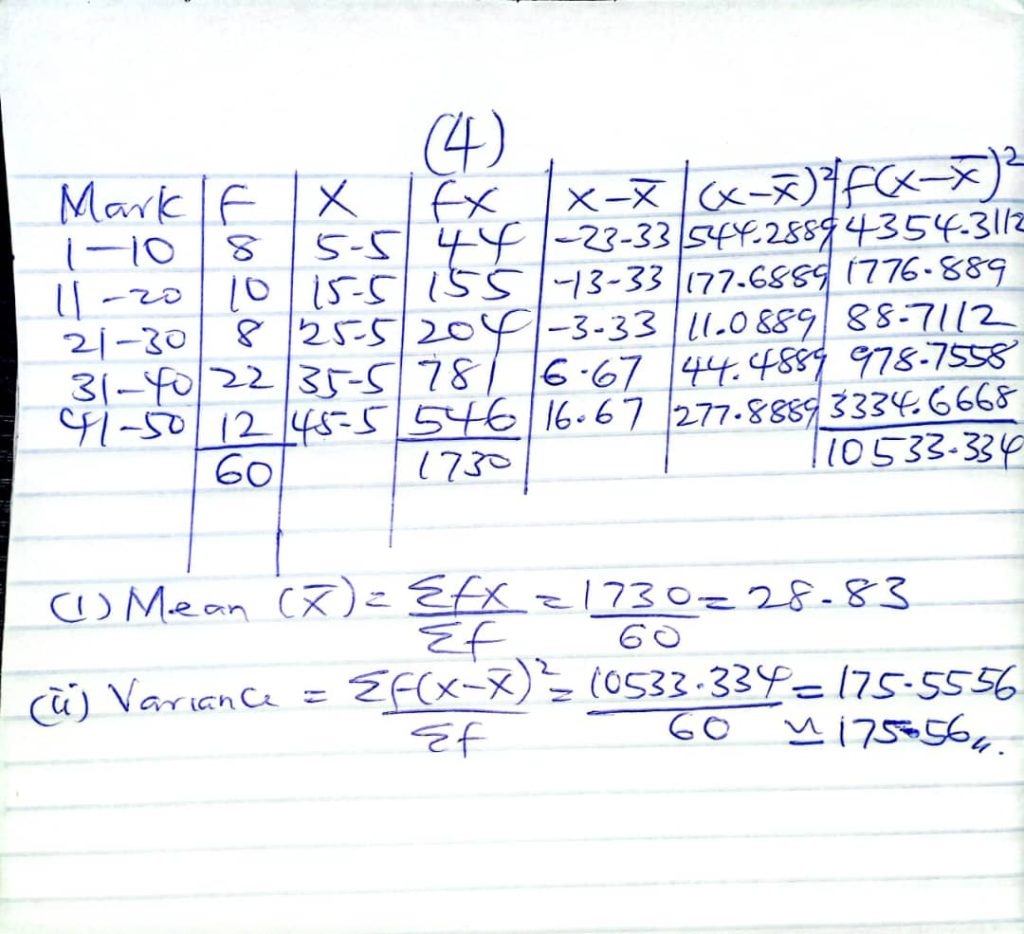 (4)
Mark F X fx x-x̄ (x-x̄)² f(x-x̄)²
1-10 8 5-5 44 -23-33 544.2889 4354-3112
11-20 10 15-5 155 -13-33 177.6889 1776-889
21-30 8 25-5 204 -3-33 11.0889 88-7112
31-40 22 35-5 781 6.67 44.4889 978-7558
41-50 12 45-5 546 16.67 277.8889 3334.6668
60 1730 10533-334
(i) Mean (x̄) = Σfx/Σf = 1730/60 = 28-83
(ii) Variance = Σf(x-x̄)²/Σf = 10533.334/60 = 175-5556
≃ 175.56,,.